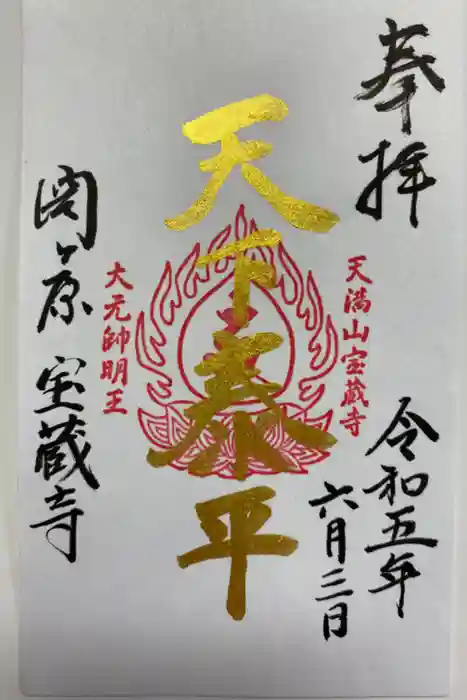 奉拝
令和五年
六月三日
天満山宝蔵寺
天下泰平
大元帥明王
関ヶ原 宝蔵寺